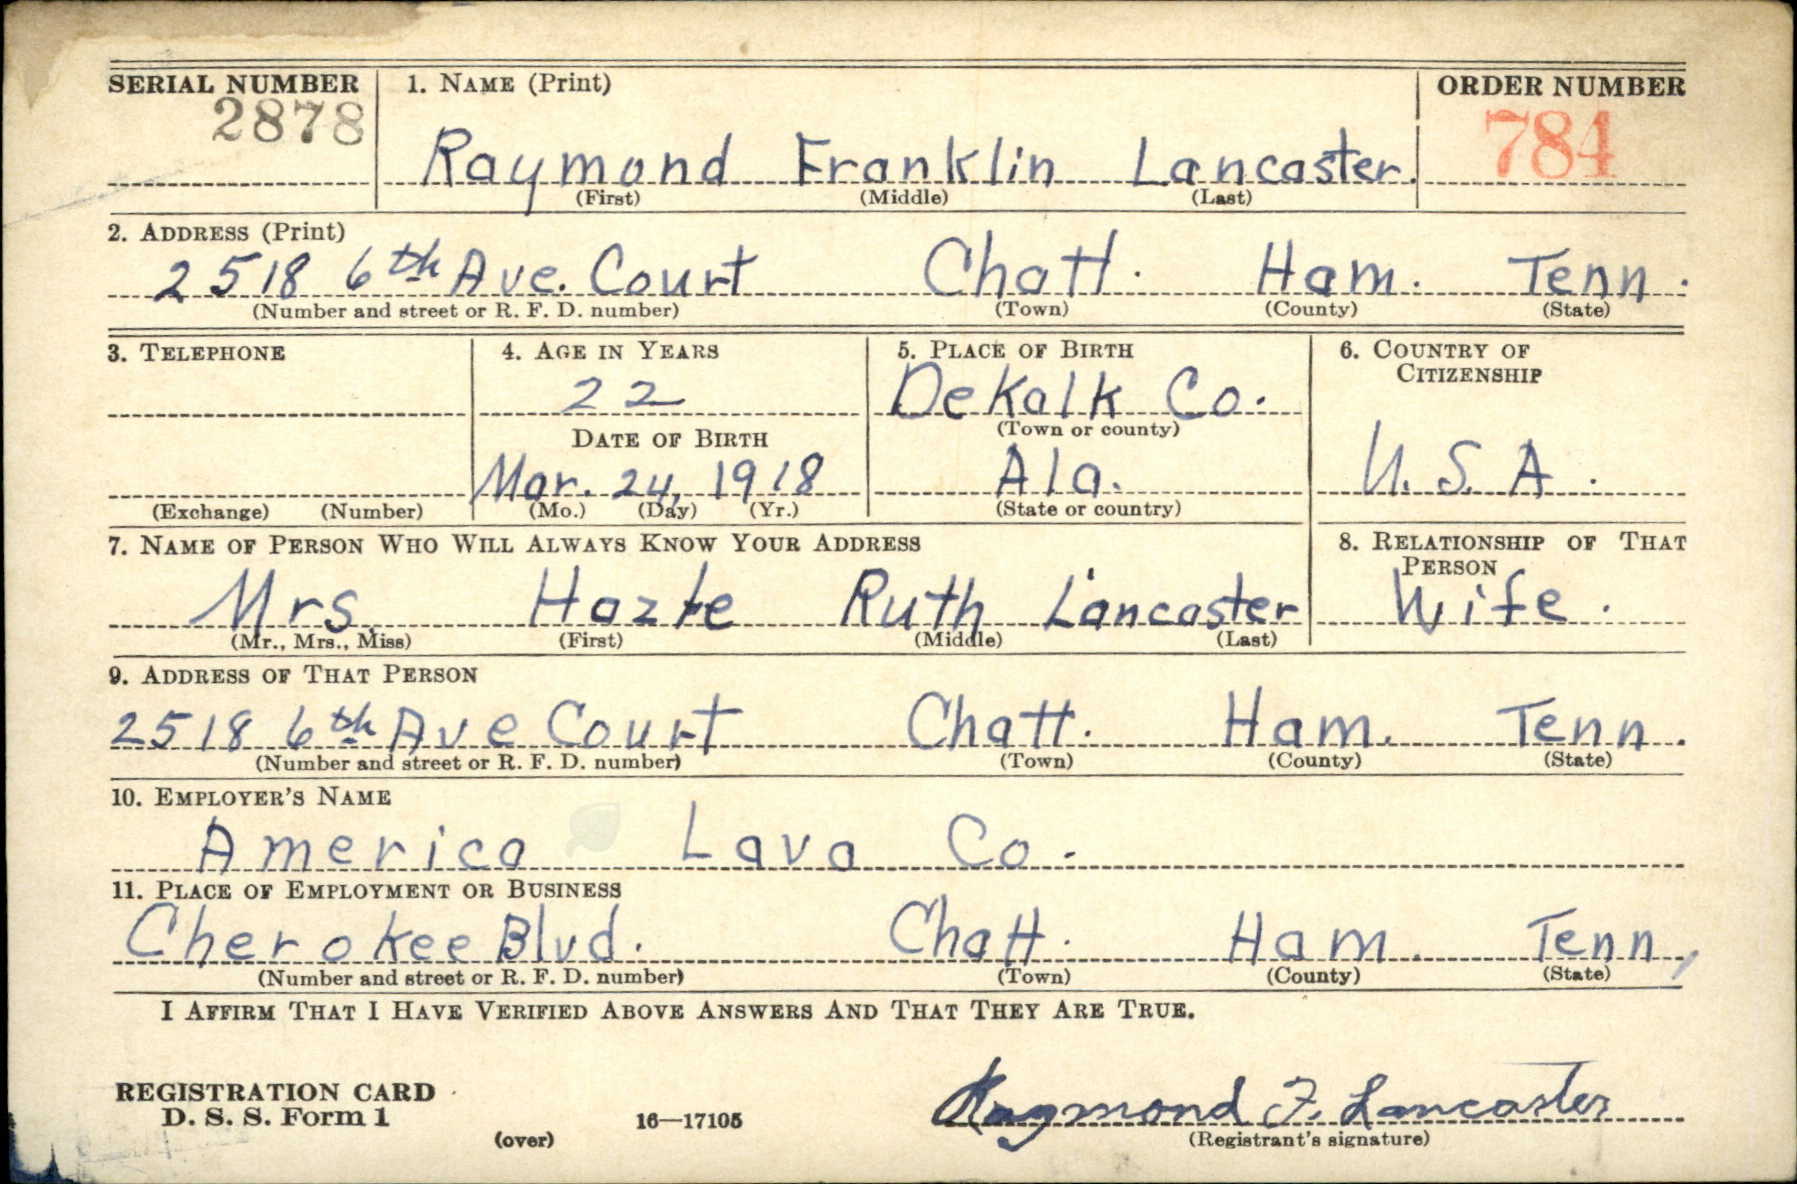 SERIAL NUMBER 1. NAME (Print) ORDER NUMBER
2878 784
Raymond Franklin Lancaster.
(First) (Middle) (Last)
2. ADDRESS (Print)
2518 6th Ave. Court Chatt. Ham. Tenn.
(Number and street or R. F. D. number) (Town) (County) (State)
3. TELEPHONE 4. AGE IN YEARS 5. PLACE OF BIRTH 6. COUNTRY OF
CITIZENSHIP
22 DeKalk Co.
DATE OF BIRTH (Town or county)
Mar. 24, 1918 Ala. U. S. A.
(Exchange) (Number) (Mo.) (Day) (Yr.) (State or country)
7. NAME OF PERSON WHO WILL ALWAYS KNOW YOUR ADDRESS 8. RELATIONSHIP OF THAT
PERSON
Mrs. Ruth Lancaster Wife.
(Mr., Mrs., Miss) (First) (Middle) (Last)
9. ADDRESS OF THAT PERSON
2518 6th Ave Court Chatt. Ham. Tenn.
(Number and street or R. F. D. number) (Town) (County) (State)
10. EMPLOYER'S NAME
America Lava Co.
11. PLACE OF EMPLOYMENT OR BUSINESS
Cherokee Blvd. Chatt. Ham. Tenn,
(Number and street or R. F. D. number) (Town) (County) (State)
I AFFIRM THAT I HAVE VERIFIED ABOVE ANSWERS AND THAT THEY ARE TRUE.
REGISTRATION CARD
D. S. S. Form 1 16—17105 Raymond F. Lancaster
(over) (Registrant's signature)